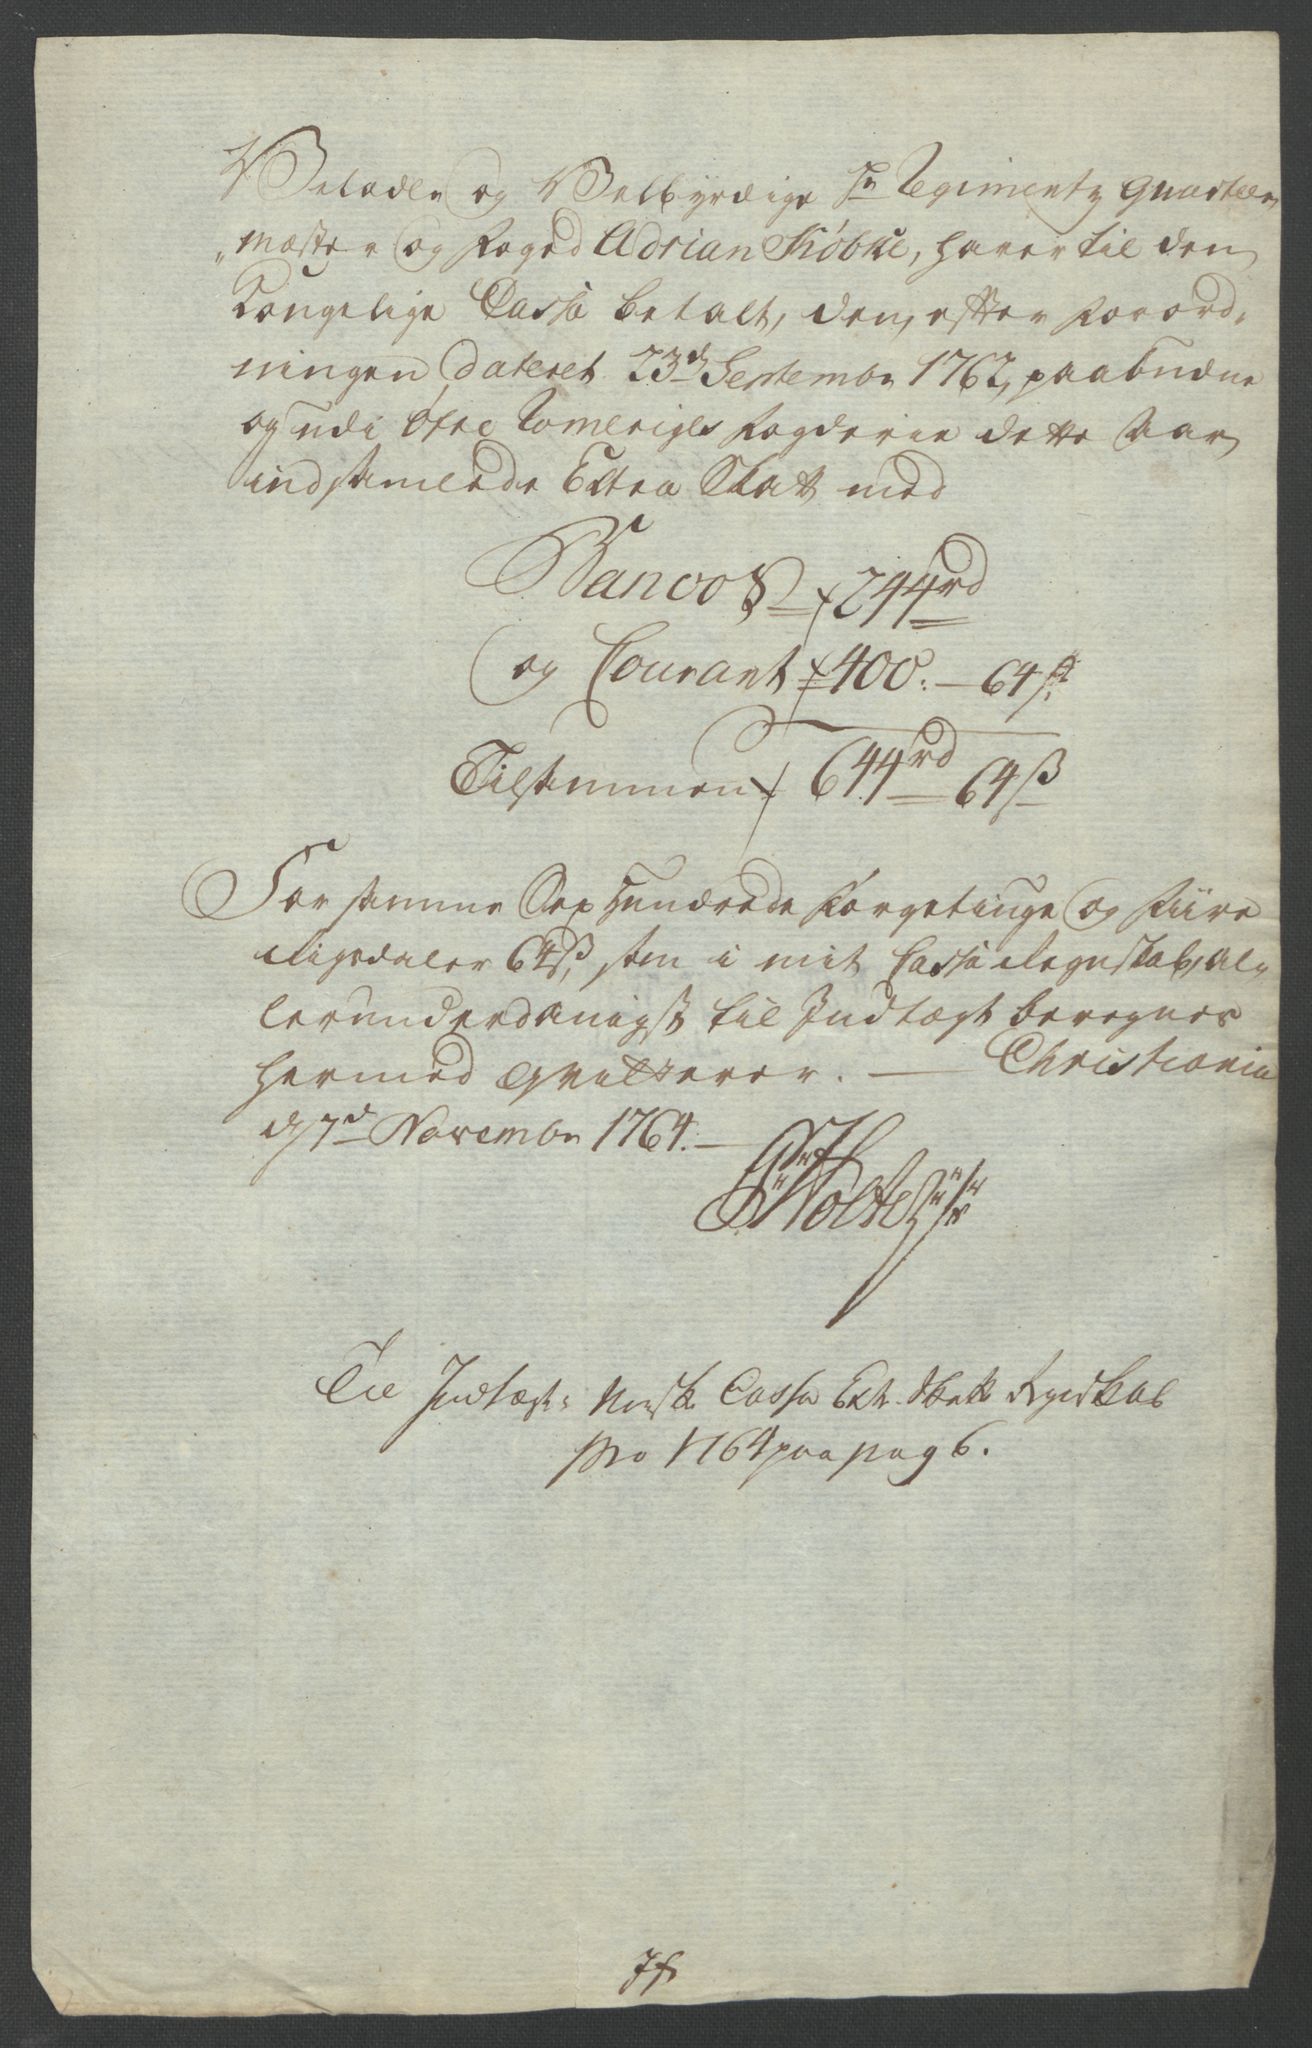 Velædle og Velbyrdige Hr Regiments Quarteer
„mæster og Foged Adrian Købke, haver til den
Kongelige Cassa betalt, den, efter Forord„
ningen dateret 23d Septembr 1762, paabudne
og udi Øfre Romeriges Fogderie dette Aar
indsamlede Extra Skatt med
Banco S 244rd
og Courant 400. – 64 ß
Tilsammen 644rd 64 ß
For samme Sex Hundrede Førgetiuge og Fiire
Rigsdaler 64 ß, som i mit Cassa Regnskab, al„
lerunderdanigst til Indtægt beregnes
hermed qvitterer. — Christiania
d 7d Novembr 1764. —
Holte
Til Indtægt i Norsk Cassa Ext. Skatts Regnskab
pro 1764 paa pag 6.